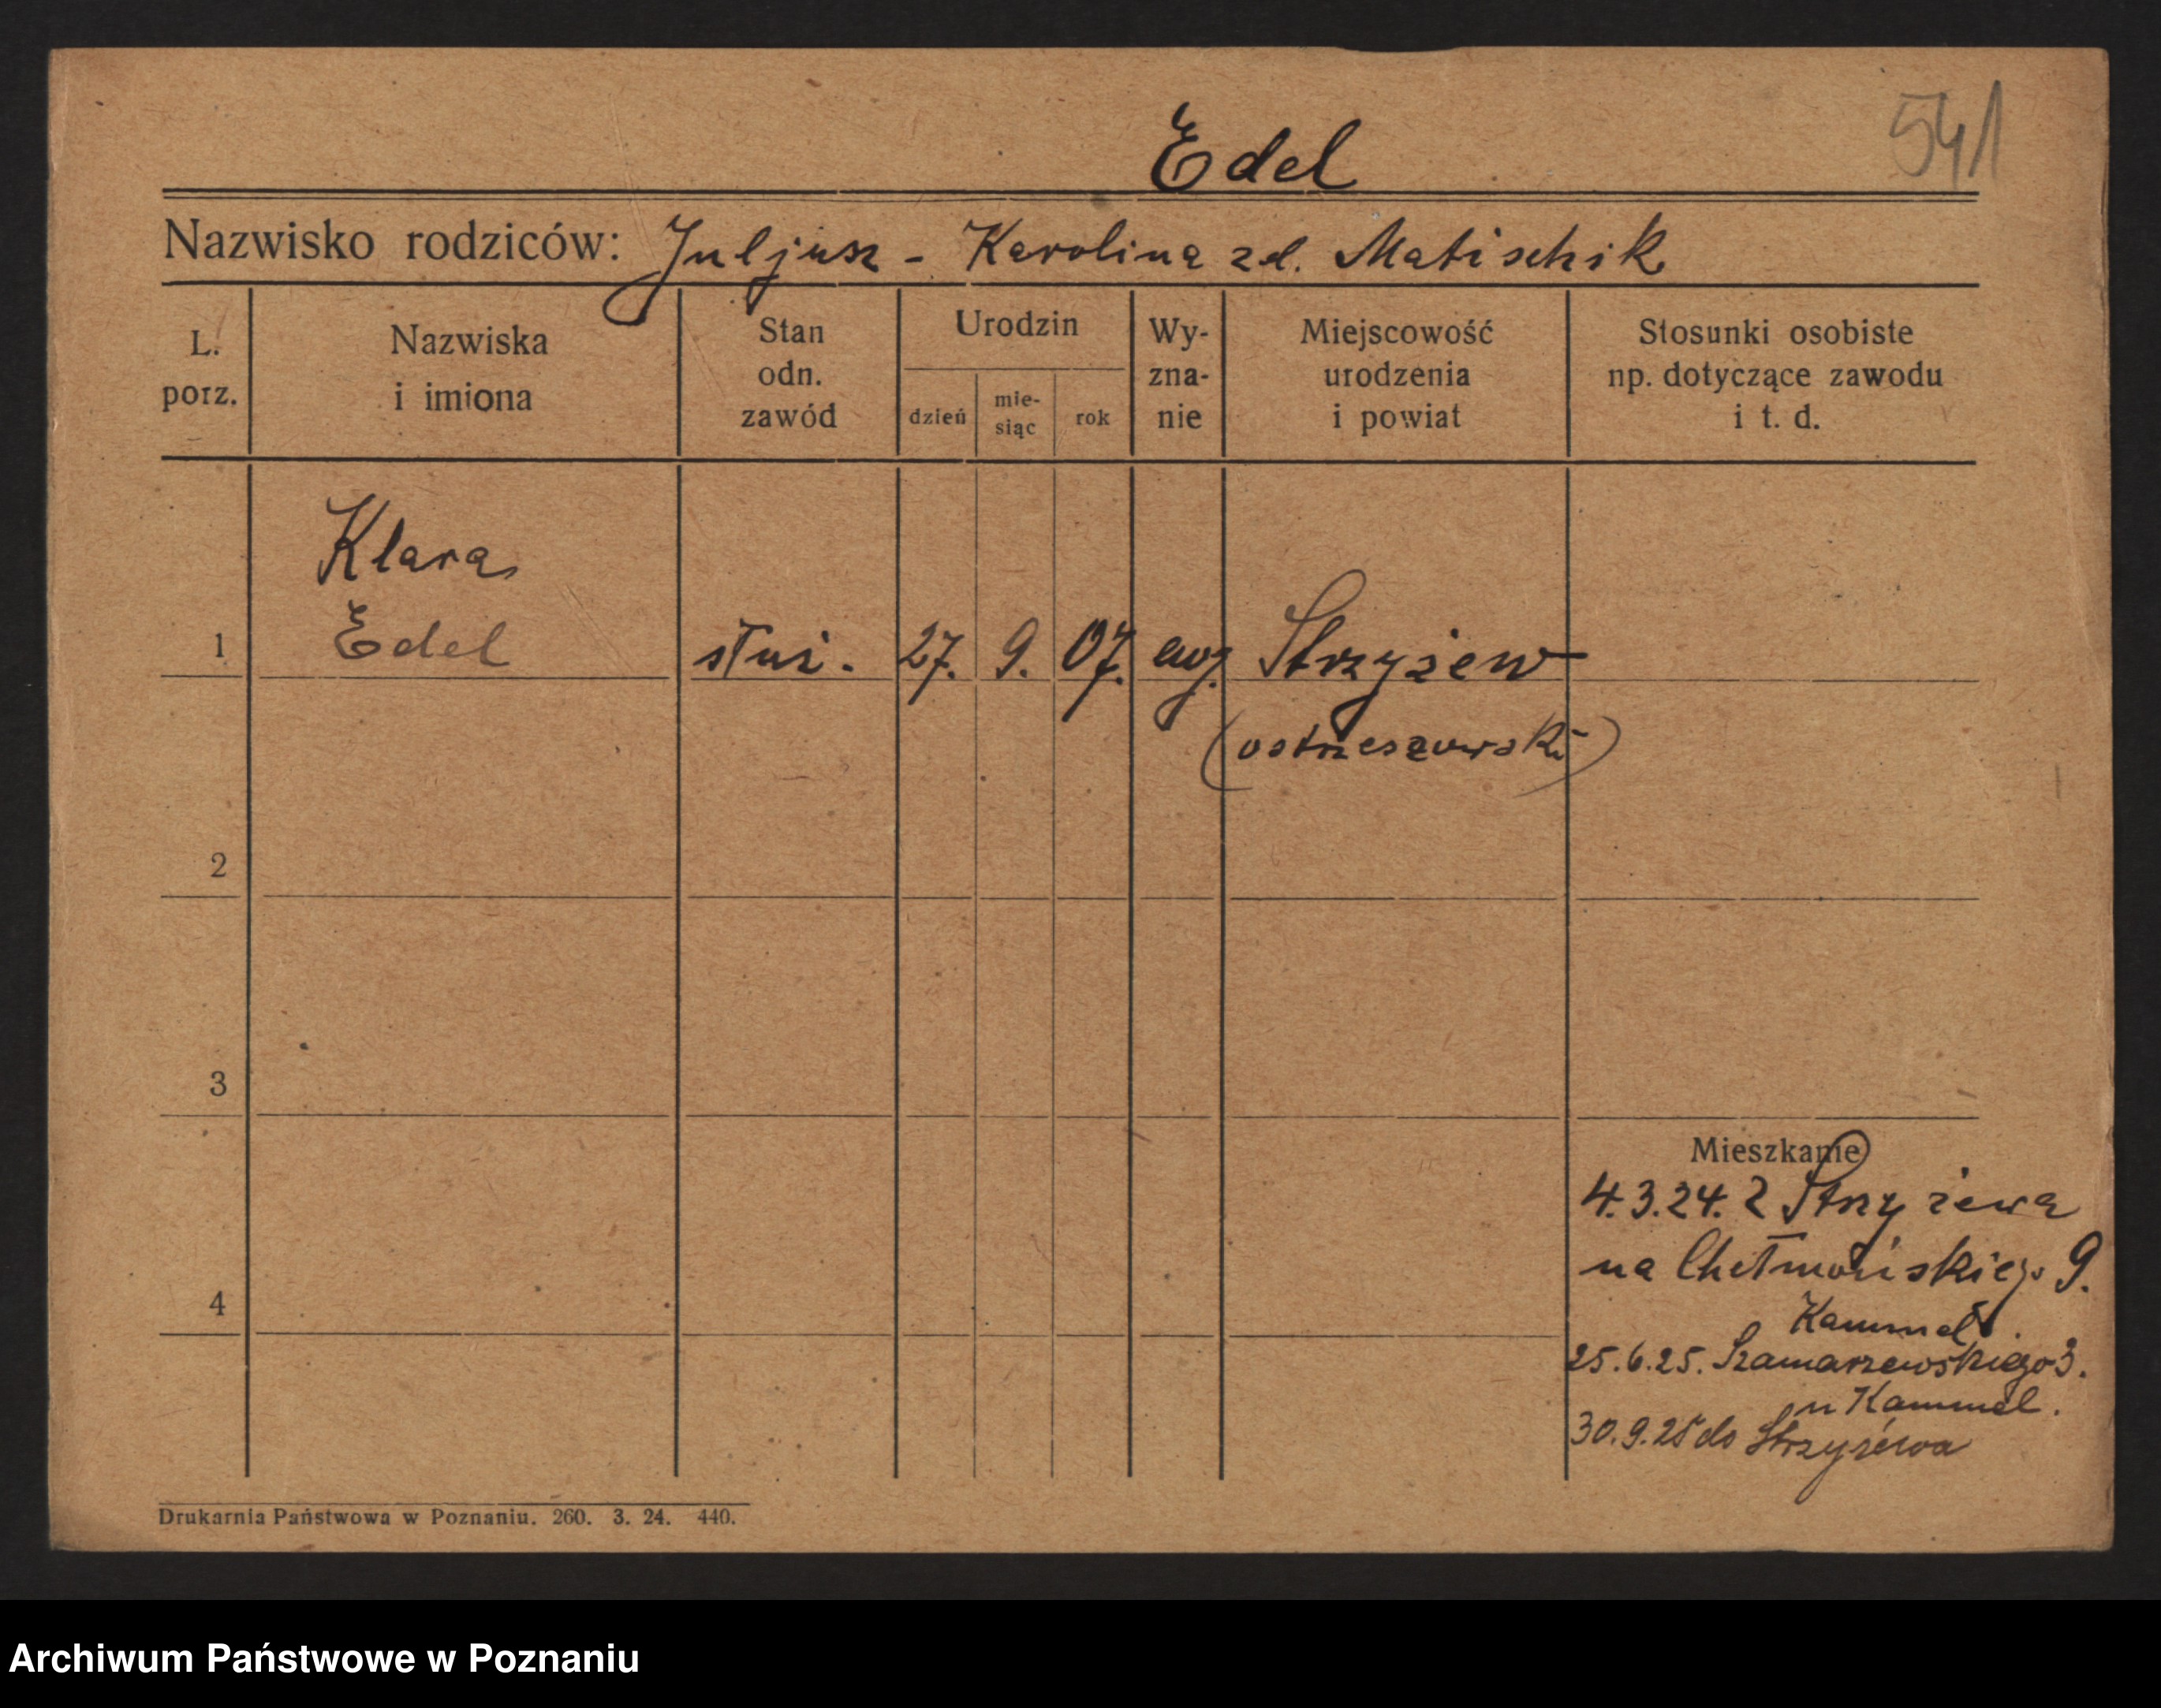 541
Edel
Nazwisko rodziców: Juljusz - Karolina zd. Matischik
L. porz.
Nazwiska i imiona
Stan odn. zawód
Urodzin
dzień
mie-siąc
rok
Wy-zna-nie
Miejscowość urodzenia i powiat
Stosunki osobiste np. dotyczące zawodu i t. d.
Klara
1 Edel służ. 27. 9. 07. ewg. Strzyżew
(ostrzeszowski)
2
3
Mieszkanie
4.3.24. z Strzyżewa
na Chełmońskiego 9.
4
Kammel.
25.6.25. Szamarzewskiego 3.
u Kammel.
30.9.25 do Strzyżewa
Drukarnia Państwowa w Poznaniu. 260. 3. 24. 440.
Archiwum Państwowe w Poznaniu